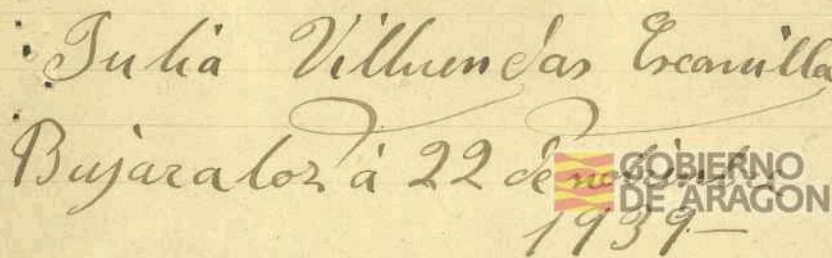 Julia Villuendas Escanilla
Bujaraloz á 22 de noviembre
GOBIERNO
DE ARAGON
1939—